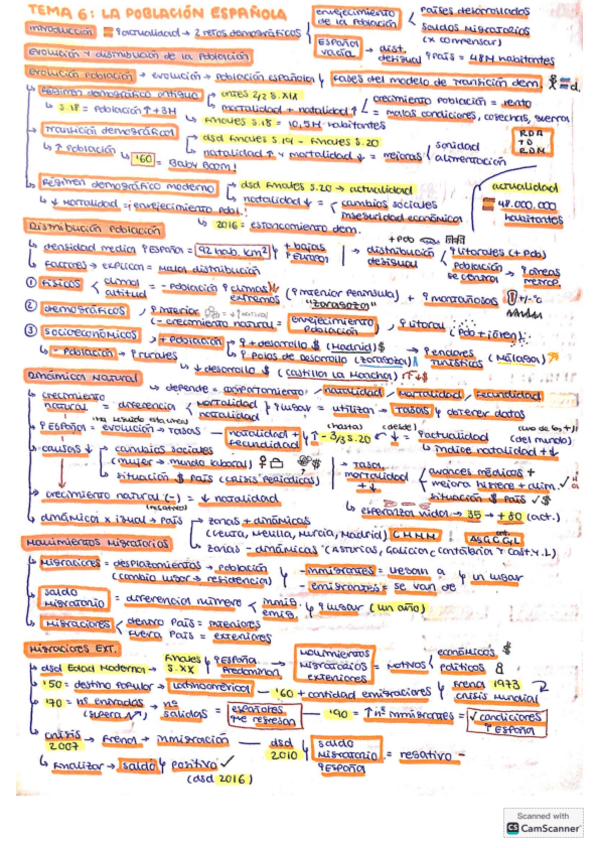 TEMA 6: LA POBLACIÓN ESPAÑOLA
Introducción actualidad → 2 retos demográficos
envejecimiento de la población
Países desarrollados
Saldos Migratorios
(x compensar)
España vacía → dist. desigual
País = 48M habitantes
Evolución y distribución de la Población
Evolución Población → evolución → población española
fases del modelo de transición dem.
Régimen demográfico antiguo → antes 2/2 S.XIX
S.18 = Población ↑ +3M
mortalidad + natalidad ↑
crecimiento población = lento
= malas condiciones, cosechas, guerras
finales S.18 = 10,5M habitantes
Transición demográfica → dsd finales S.19 - finales S.20
natalidad ↑ y mortalidad ↓ = mejoras
sanidad
alimentación
↑ Población
'60 = Baby Boom!
RDA
TD
RDM
Régimen demográfico moderno → dsd finales S.20 → actualidad
↓ Mortalidad = ¡envejecimiento Pobl.!
natalidad ↓ =
cambios sociales
inseguridad económica
2016 = estancamiento dem.
actualidad
48.000.000
habitantes
Distribución Población
densidad media España = 92 hab. km²
+ bajas Europa
→ distribución desigual
litorales (+ Pob)
Población se centra
áreas metrop.
factores → explican = mala distribución
① físicos
clima
altitud
= - población
climas extremos
(interior Península)
"Zaragoza"
+ montañosos
+/- °C
② demográficos
interior
(- crecimiento natural = envejecimiento Población
litoral (Pob + joven)
③ socioeconómicos
+ población
+ desarrollo (Madrid) $
Polos de desarrollo (Zaragoza)
enclaves turísticos (Málaga)
- Población → rurales
↓ desarrollo $ (Castilla La Mancha)
Dinámica Natural
depende = comportamiento
natalidad / mortalidad / fecundidad
crecimiento natural = diferencia
Mortalidad
natalidad
lugar = utilizan → TASAS y obtener datos
España = evolución → tasas
natalidad + fecundidad
↑ - 3/3 S.20
(hasta)
(desde)
↓ = actualidad
(del mundo)
índice natalidad + ↓
causas ↓
cambios sociales
(mujer → mundo laboral)
situación $ país (crisis periódicas)
tasa mortalidad + ↓
avances médicos +
mejora higiene + alim.
situación $ País ✓ $
esperanza vida → 35 → + 80 (act.)
crecimiento natural (-) = ↓ natalidad
(negativo)
dinámica x igual → país
zonas + dinámicas
(Ceuta, Melilla, Murcia, Madrid) C M M M !
zonas - dinámicas (Asturias, Galicia, Cantabria y Cast. y L)
Movimientos Migratorios
Migraciones = desplazamientos → población
(cambia lugar → residencia)
- inmigrantes = llegan a un lugar
- emigrantes = se van de
saldo Migratorio = diferencia número
inmig.
emig.
lugar (un año)
Migraciones
dentro País = interiores
fuera País = exteriores
Migraciones Ext.
dsd Edad Moderna → finales S.XX
España Predominan
→ Movimientos Migratorios exteriores = motivos
económicos $
políticos
'50 = destino popular → Latinoamérica — '60 + cantidad emigraciones
frena 1973
crisis mundial
'70 = nº entradas → nº salidas =
(supera)
españoles que regresan
— '90 = ↑ nº inmigrantes = ✓ condiciones España
crisis 2007 → frena → inmigración — dsd 2010
saldo Migratorio España = negativo -
finalizar → saldo positivo ✓
(dsd 2016)
Scanned with
CS CamScanner